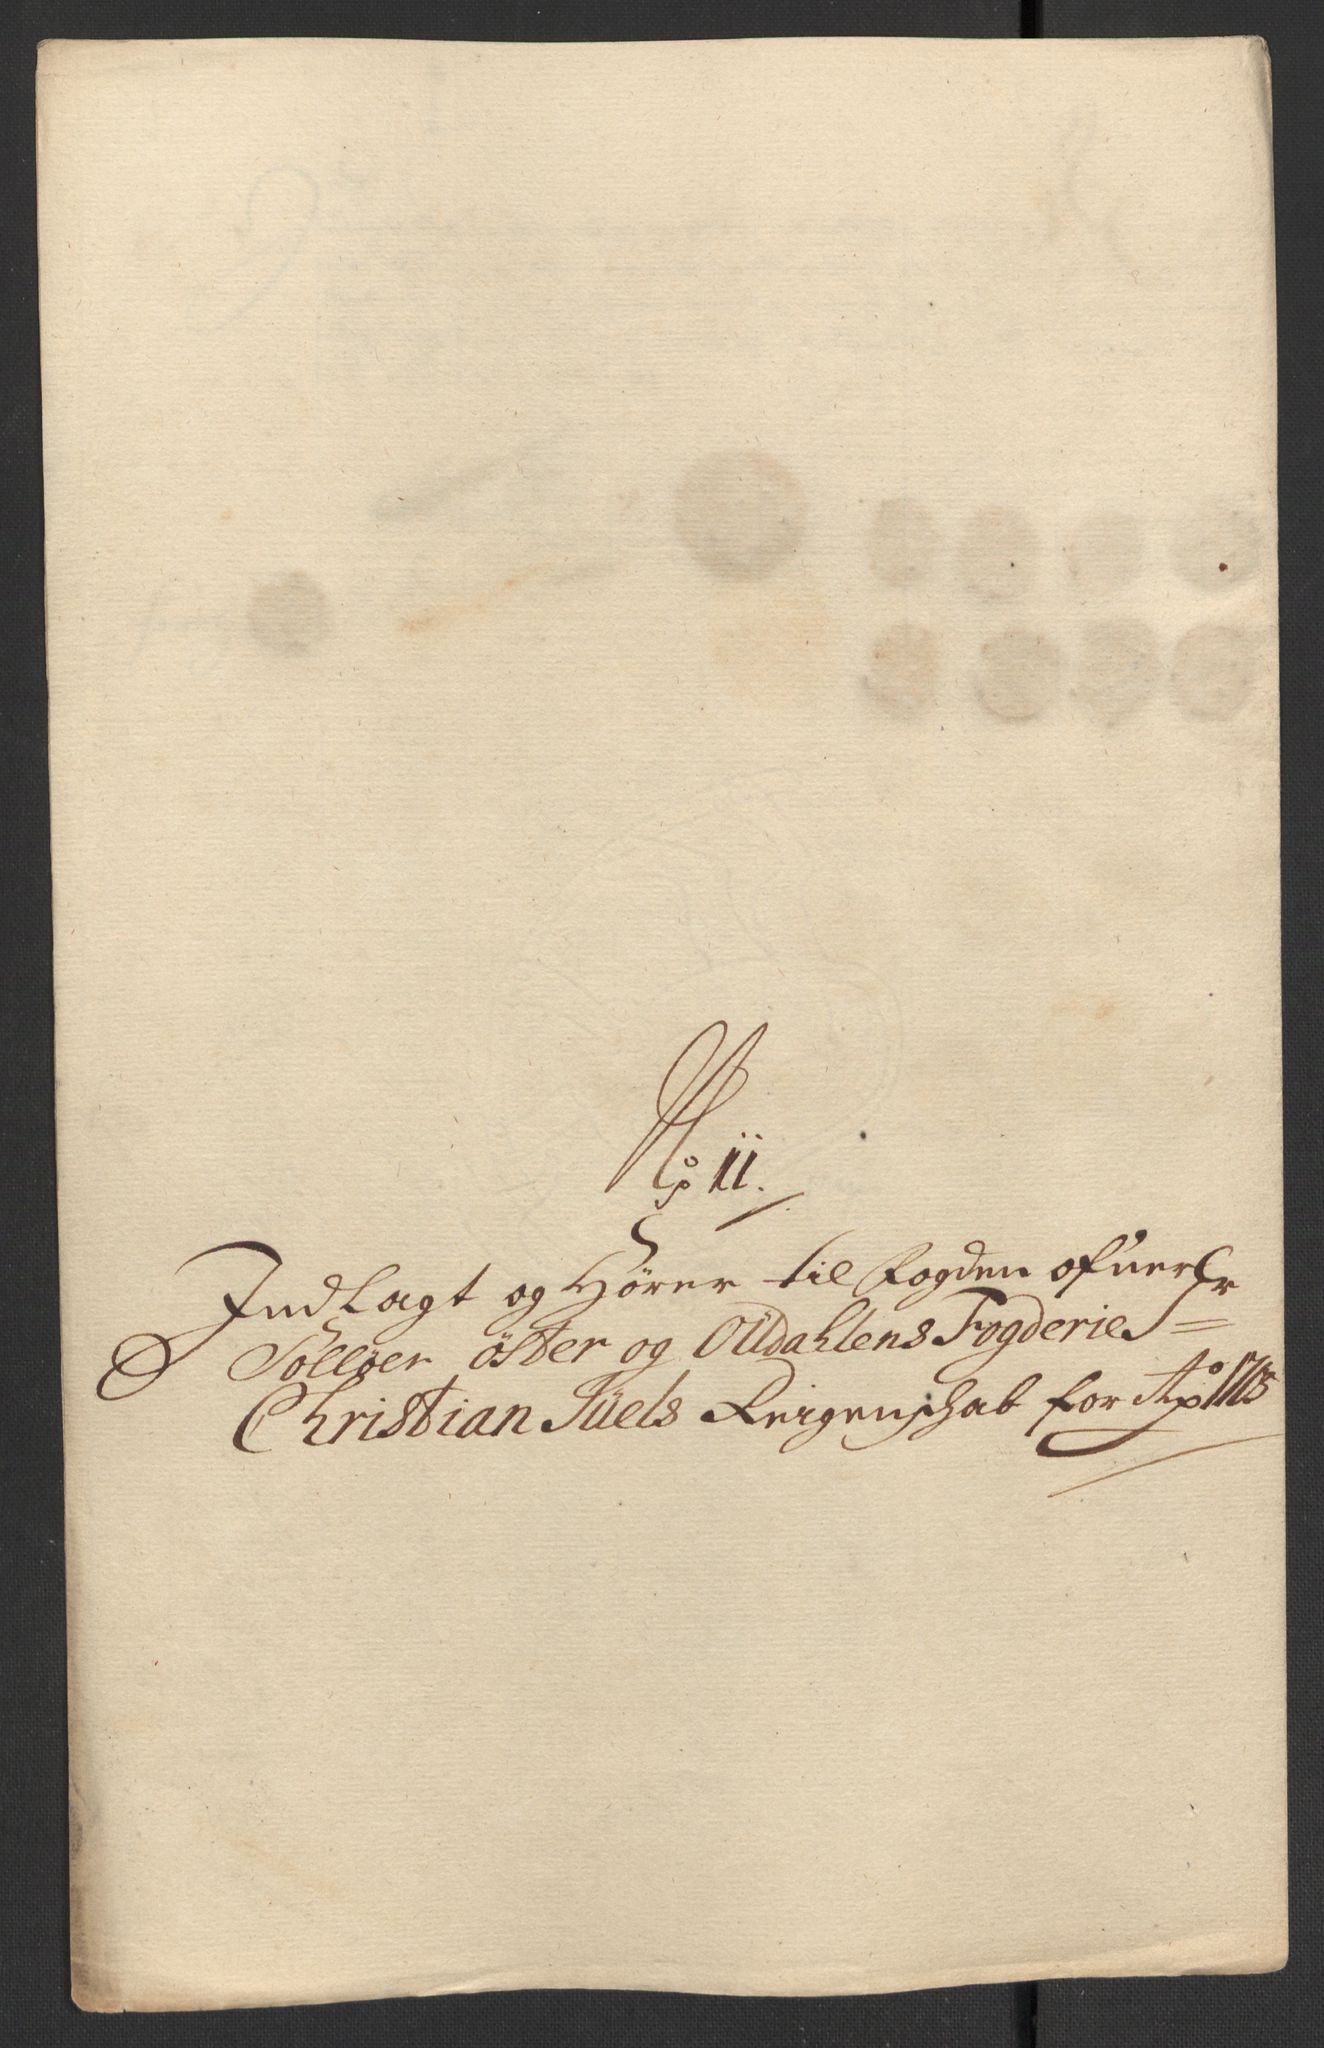 No 11.
Indlagt og Hører til fogden ofuer
Solløer öster og Oüdahlens Fogderie
Christian Jüels Reigenschab for Ao 1705